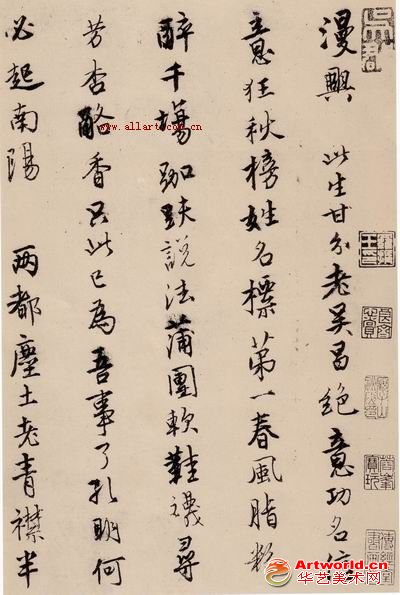 漫興 此生甘分老吳昌絕意功名信
意狂秋榜姓名標第一春風脂粉
醉千場跏趺說法蒲團軟鞋襪尋
芳杏酪香只此已為吾事了孔明何
必起南陽 兩都塵土老青襟半
Artworld.cn
华艺美术网